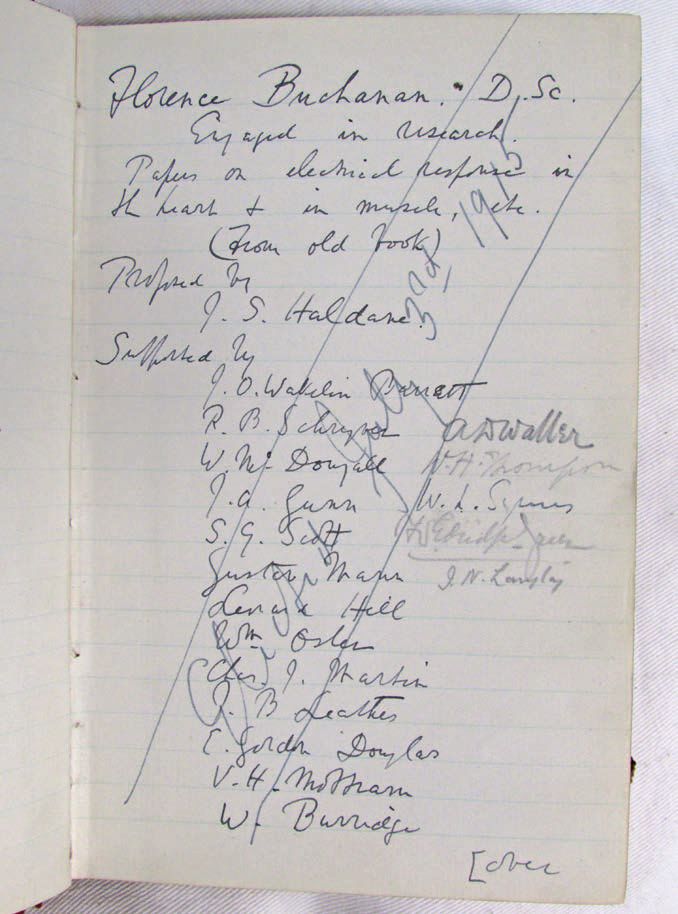 Florence Buchanan. D.Sc.
Engaged in research.
Papers on electrical response in
the heart & in muscle, etc.
(From old book)
Proposed by
J. S. Haldane.
Supported by
J. O. Wakelin Barratt
R. B. Schryver
A D Waller
W. McDougall
W. H. Thompson
J. A. Gunn
W. L. Symes
S. G. Scott
F W Edridge-Green
Gustav Mann
J. N. Langley
Leonard Hill
Wm Osler
Chas. J. Martin
J. B Leathes
C. Gordon Douglas
V. H. Mottram
W. Burridge
[over
Elected July 3rd 1915